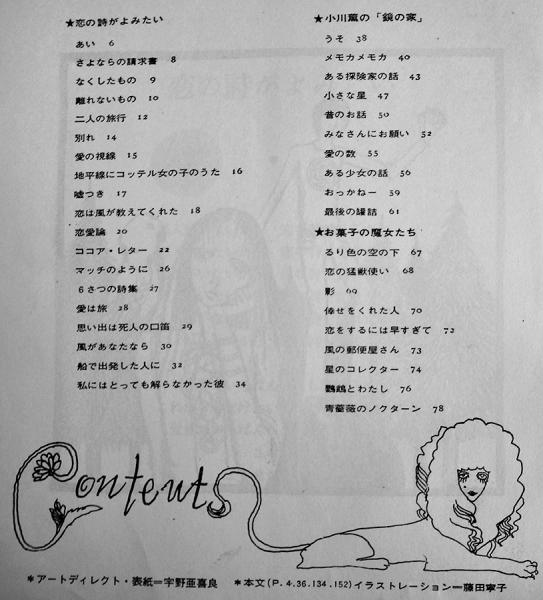 ★恋の詩がよみたい
あい 6
さよならの請求書 8
なくしたもの 9
離れないもの 10
二人の旅行 12
別れ 14
愛の視線 15
地平線にコッテル女の子のうた 16
嘘つき 17
恋は風が教えてくれた 18
恋愛論 20
ココア・レター 22
マッチのように 26
6さつの詩集 27
愛は旅 28
思い出は死人の口笛 29
風があなたなら 30
船で出発した人に 32
私にはとっても解らなかった彼 34
★小川薫の「鏡の家」
うそ 38
メモカメモカ 40
ある探険家の話 43
小さな星 47
昔のお話 50
みなさんにお願い 52
愛の数 55
ある少女の話 56
おっかねー 59
最後の罐詰 61
★お菓子の魔女たち
るり色の空の下 67
恋の猛獣使い 68
影 69
倖せをくれた人 70
恋をするには早すぎて 72
風の郵便屋さん 73
星のコレクター 74
鸚鵡とわたし 76
青薔薇のノクターン 78
Contents
*アートディレクト・表紙=宇野亜喜良 *本文(P.4.36.134.152)イラストレーション=藤田寧子